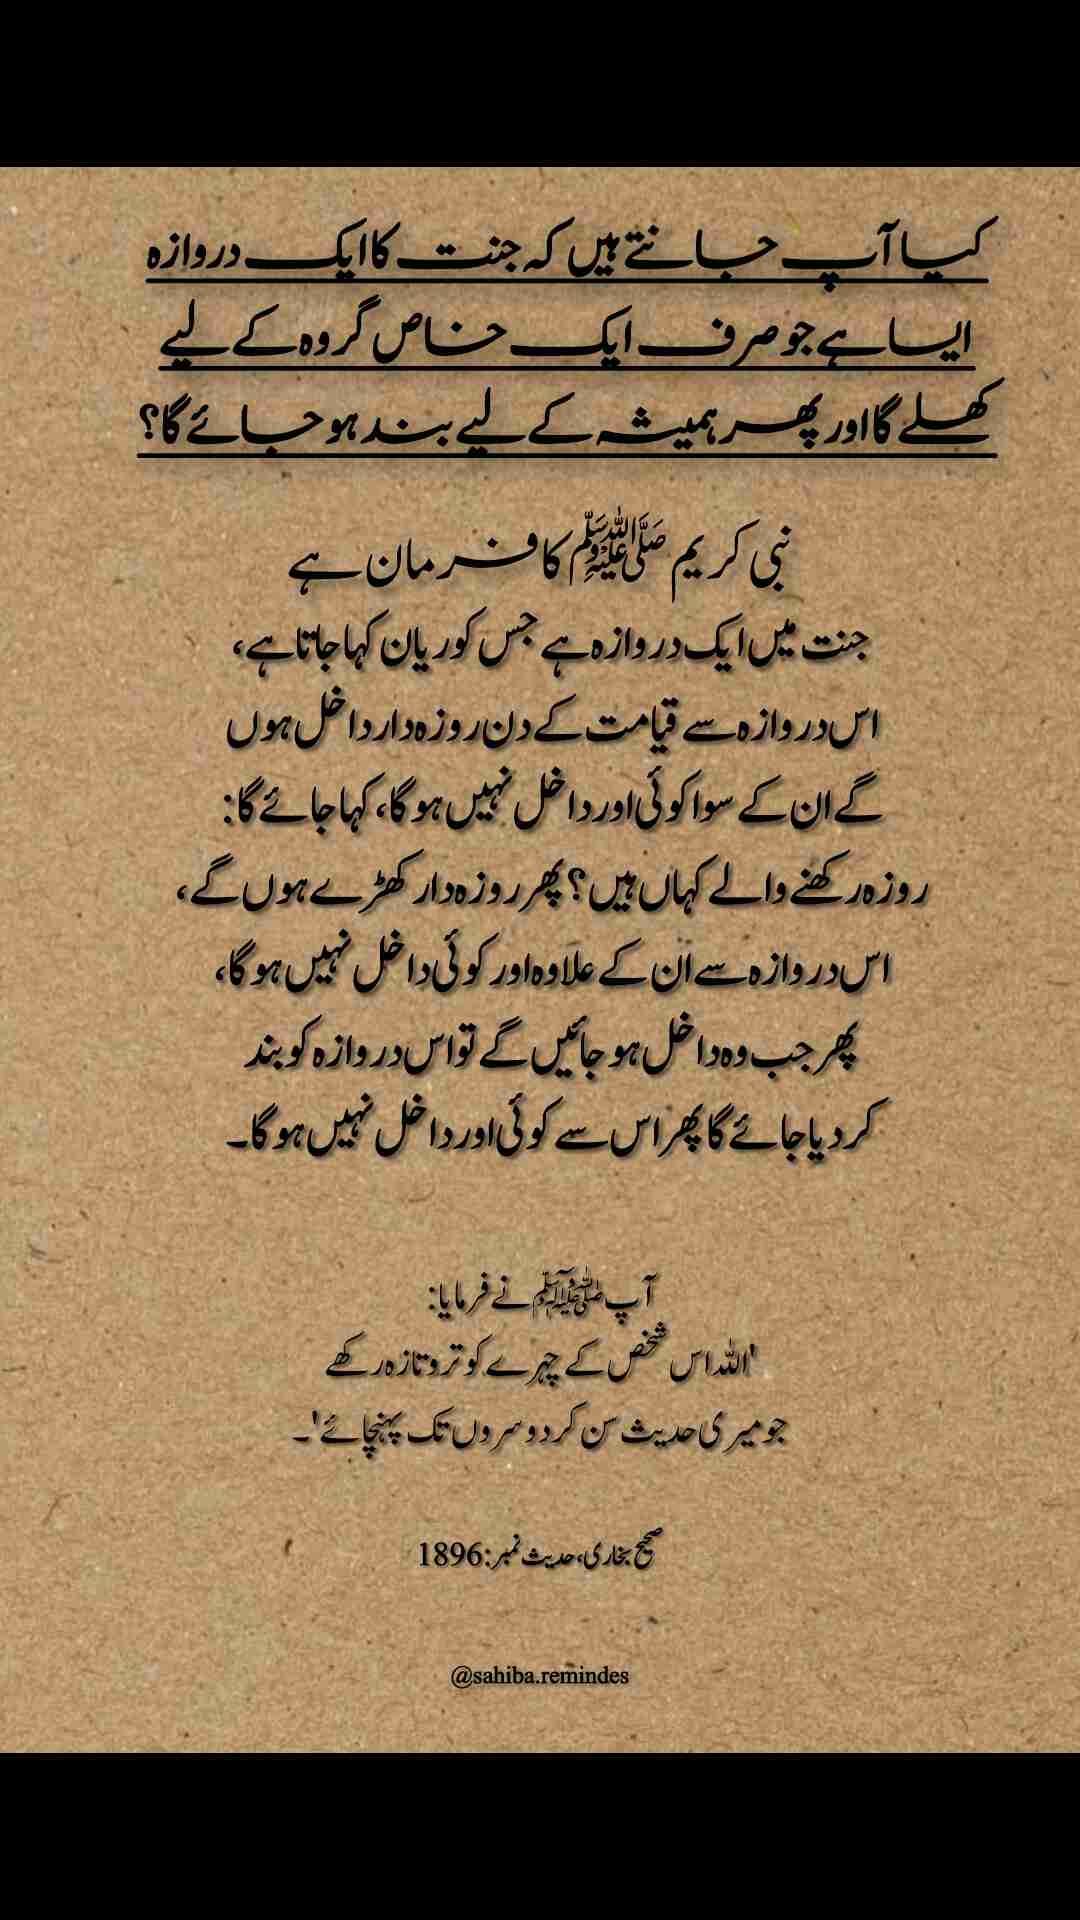 کیا آپ جانتے ہیں کہ جنت کا ایک دروازہ
ایسا ہے جو صرف ایک خاص گروہ کے لیے
کھلے گا اور پھر ہمیشہ کے لیے بند ہو جائے گا؟
نبی کریم ﷺ کا فرمان ہے
جنت میں ایک دروازہ ہے جس کو ریان کہا جاتا ہے،
اس دروازہ سے قیامت کے دن روزہ دار داخل ہوں
گے ان کے سوا کوئی اور داخل نہیں ہو گا، کہا جائے گا:
روزہ رکھنے والے کہاں ہیں؟ پھر روزہ دار کھڑے ہوں گے،
اس دروازہ سے ان کے علاوہ اور کوئی داخل نہیں ہو گا،
پھر جب وہ داخل ہو جائیں گے تو اس دروازہ کو بند
کر دیا جائے گا پھر اس سے کوئی اور داخل نہیں ہو گا۔
آپ ﷺ نے فرمایا:
'اللہ اس شخص کے چہرے کو تروتازہ رکھے
جو میری حدیث سن کر دوسروں تک پہنچائے'۔
صحیح بخاری، حدیث نمبر: 1896
@sahiba.remindes